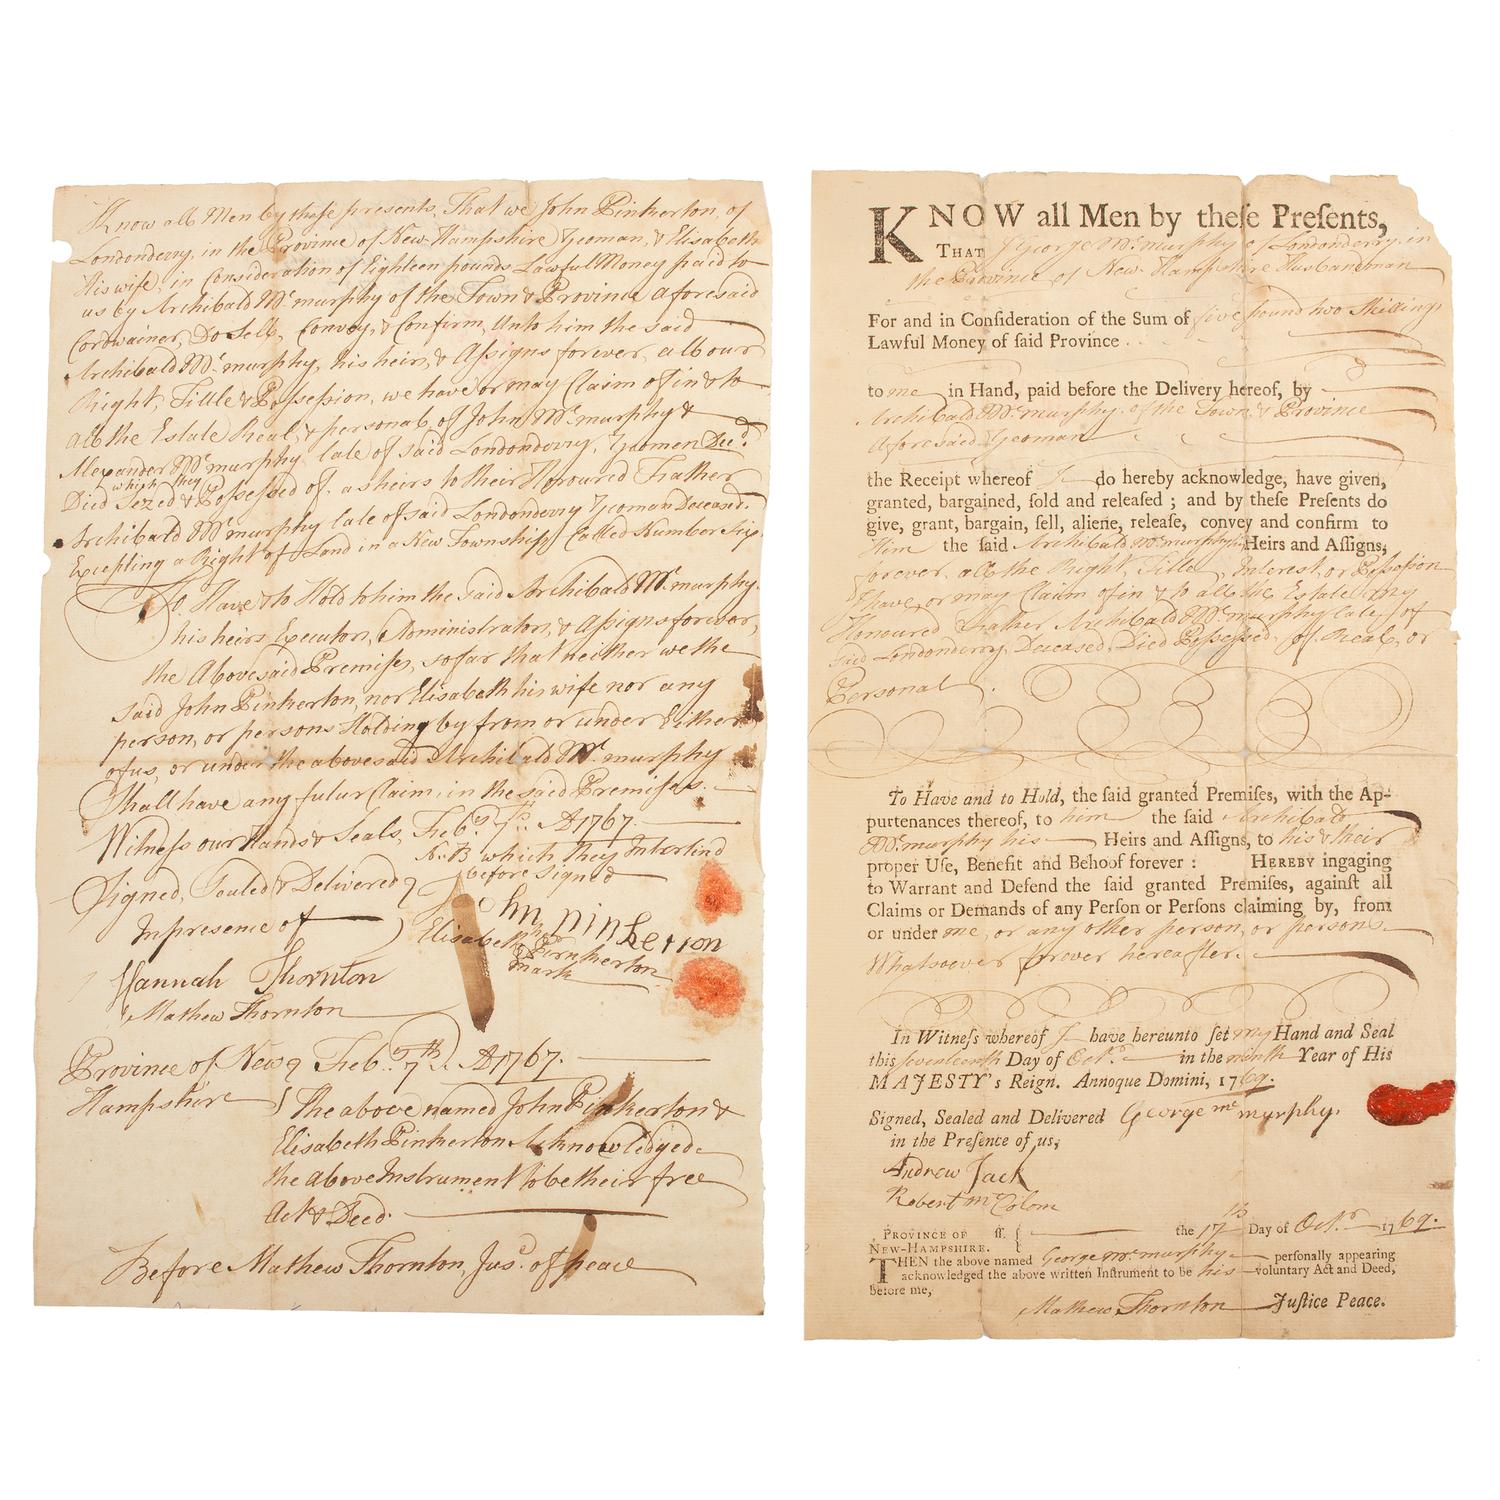 Know all Men by these presents, That we John Pinkerton, of
Londonderry, in the Province of New-Hampshire Yeoman, & Elisabeth
His wife, in Consideration of Eighteen pounds Lawful Money paid to
us by Archibald Mc.murphy of the Town & Province Aforesaid
Cordwainer, Do Sell, Convey, & Confirm, Unto him the said
Archibald Mc.murphy, his heirs, & Assigns forever, all our
Right, Title & Possession, we have or may Claim of in & to
all the Estate Real, & personal, of John Mc.murphy &
Alexander Mc.murphy late of said Londonderry, Yeomen Decd.
which they
Died Sezed & Possessed of, as heirs to their Honoured Father
Archibald Mc.murphy late of said Londonderry Yeoman Deceased.
Excepting a Right of Land in a New Township Called Number Six
To Have & to Hold to him the said Archibald Mc.murphy.
his heirs Executors, Administrators, & Assigns forever,
the Abovesaid Premises, so far that neither we the
said John Pinkerton, nor Elisabeth his wife nor any
person, or persons Holding by from or under Either
of us, or under the abovesaid Archibald Mc.murphy
Shall have any futur Claim, in the said Premises.
Witness our Hands & Seals, Feb. 7th. AD 1767.
N.B which they Interlind
before Signed
Signed, Sealed & Delivered
In presence of
John pinkerton
Elisabeth her Pinkerton
mark
Hannah Thornton
Mathew Thornton
Province of New Feb. 7th. AD 1767.
Hampshire } The above named John Pinkerton &
Elisabeth Pinkerton Acknowledgede
the Above Instrument to be their free
Act & Deed.
Before Mathew Thornton, Jusc. of peace
KNOW all Men by theſe Preſents,
THAT I George Mc.murphy of Londonderry, in
the Province of New-Hampshire Husbandman
For and in Conſideration of the Sum of five pound two Shillings
Lawful Money of ſaid Province
to me in Hand, paid before the Delivery hereof, by
Archibald Mc.murphy, of the Town, & Province
Aforesaid Yeoman
the Receipt whereof I do hereby acknowledge, have given,
granted, bargained, ſold and releaſed ; and by theſe Preſents do
give, grant, bargain, ſell, aliene, releaſe, convey and confirm to
Him the ſaid Archibald Mc.murphy his Heirs and Aſſigns,
forever, all the Right, Title, Interest, or Possession
I have, or may Claim of in & to all the Estate my
Honoured Father Archibald Mc.murphy late of
said Londonderry, Deceased, Died Possessed of Real, or
Personal.
To Have and to Hold, the ſaid granted Premiſes, with the Ap-
purtenances thereof, to him the ſaid Archibald
Mc.murphy his Heirs and Aſſigns, to his & their
proper Uſe, Benefit and Behoof forever : HEREBY ingaging
to Warrant and Defend the ſaid granted Premiſes, againſt all
Claims or Demands of any Perſon or Perſons claiming by, from
or under me, or any other person, or persons
Whatsoever forever hereafter.
In Witneſs whereof I have hereunto ſet my Hand and Seal
this seventeenth Day of Octr. in the nineth Year of His
MAJESTY's Reign. Annoque Domini, 1769.
Signed, Sealed and Delivered George mc murphy.
in the Preſence of us,
Andrew Jack
Robert
PROVINCE OF ſſ. { the 17th Day of Octr. 1769.
NEW-HAMPSHIRE.
THEN the above named George Mc.murphy perſonally appearing
acknowledged the above written Inſtrument to be his voluntary Act and Deed,
before me,
Mathew Thornton Juſtice Peace.